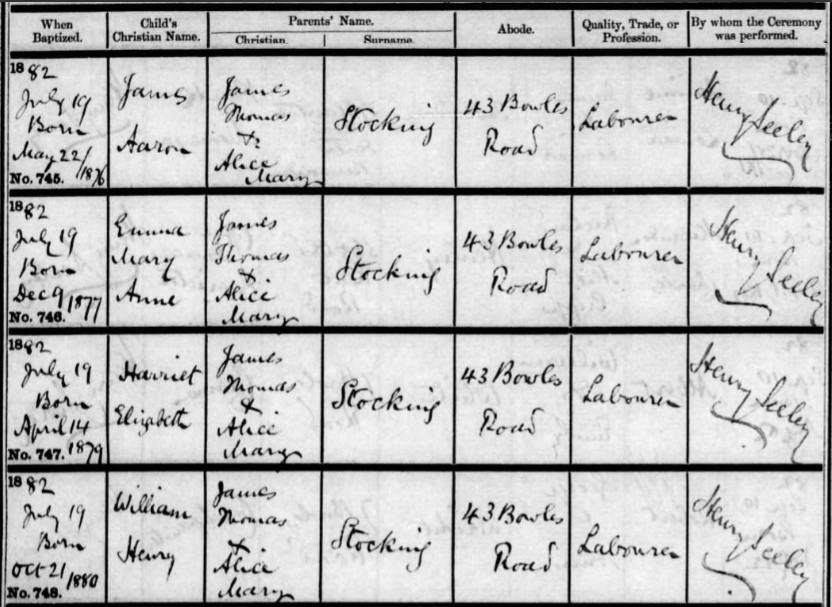 When Baptized.
Child's Christian Name.
Parents' Name.
Christian.
Surname.
Abode.
Quality, Trade, or Profession.
By whom the Ceremony was performed.
1882
July 19
Born
May 22/1876
No. 745.
James
Aaron
James
Thomas
&
Alice
Mary
Stocking
43 Bowles
Road
Labourer
Henry Seeley
1882
July 19
Born
Dec 9/1877
No. 746.
Emma
Mary
Anne
James
Thomas
&
Alice
Mary
Stocking
43 Bowles
Road
Labourer
Henry Seeley
1882
July 19
Born
April 14
No. 747. 1879
Harriet
Elizabeth
James
Thomas
&
Alice
Mary
Stocking
43 Bowles
Road
Labourer
Henry Seeley
1882
July 19
Born
Oct 21/1880
No. 748.
William
Henry
James
Thomas
&
Alice
Mary
Stocking
43 Bowles
Road
Labourer
Henry Seeley